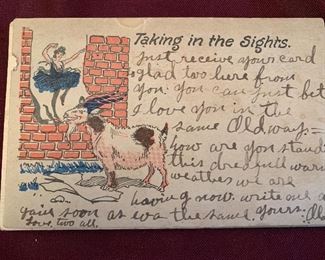 Taking in the Sights.
Just receive your card
glad two here from
you. you can just bet
I love you in the
same Old way =
how are you stand
this dreadfull warm
weather we are
having now. write me a
soon as eva the same. yours.
Love, two all.